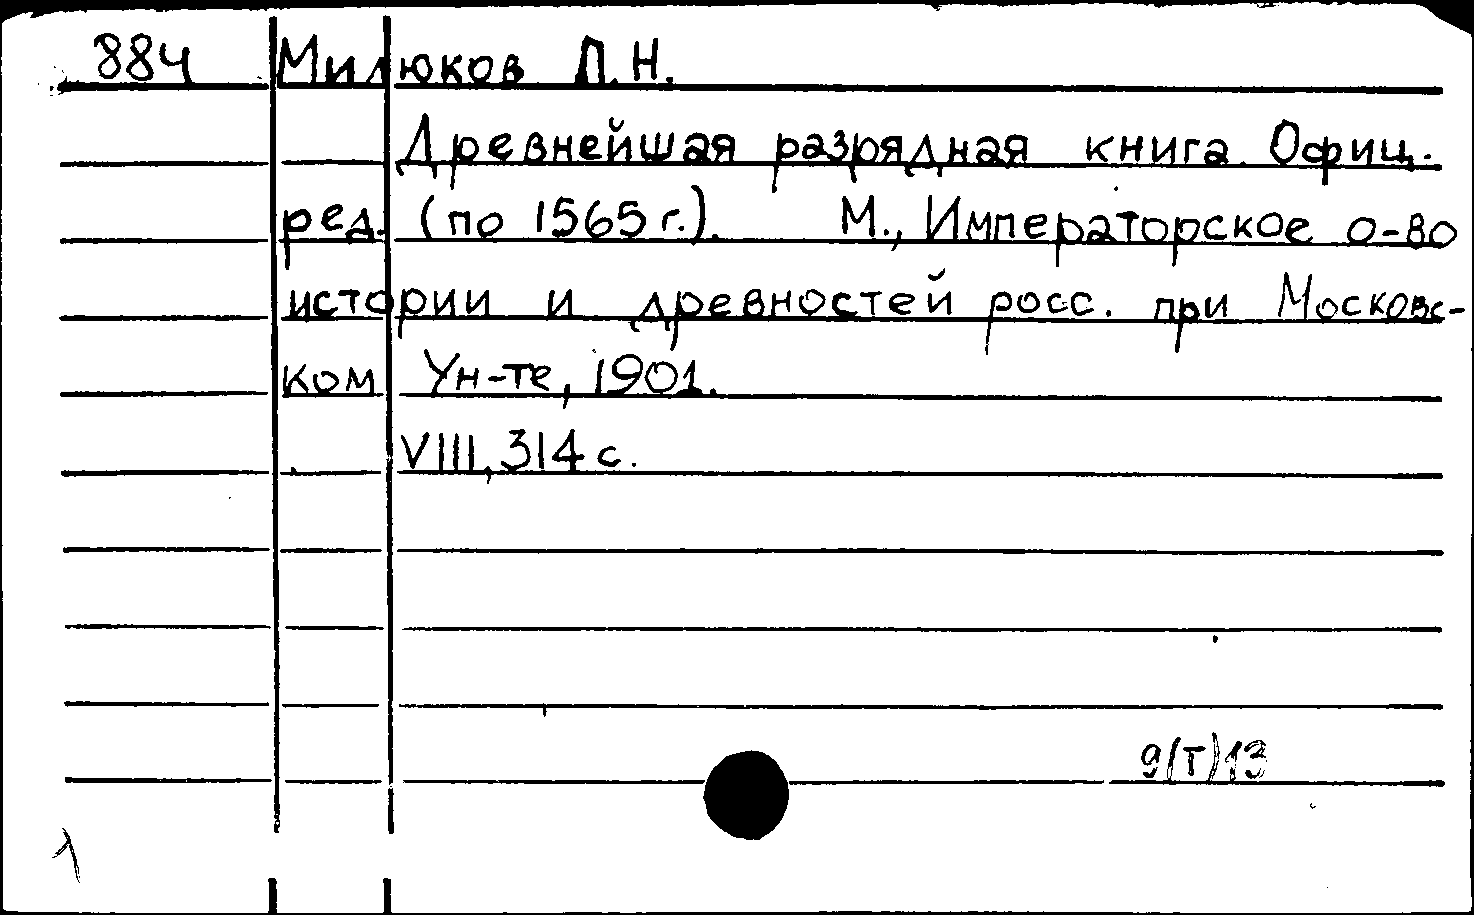 884 Милюков П.Н.
Древнейшая разрядная книга Офиц.
ред. (по 1565 г.). М., Императорское о-во
истории и древностей росс. при Московс-
ком Ун-те, 1901.
VIII, 314 с.
9(т)13